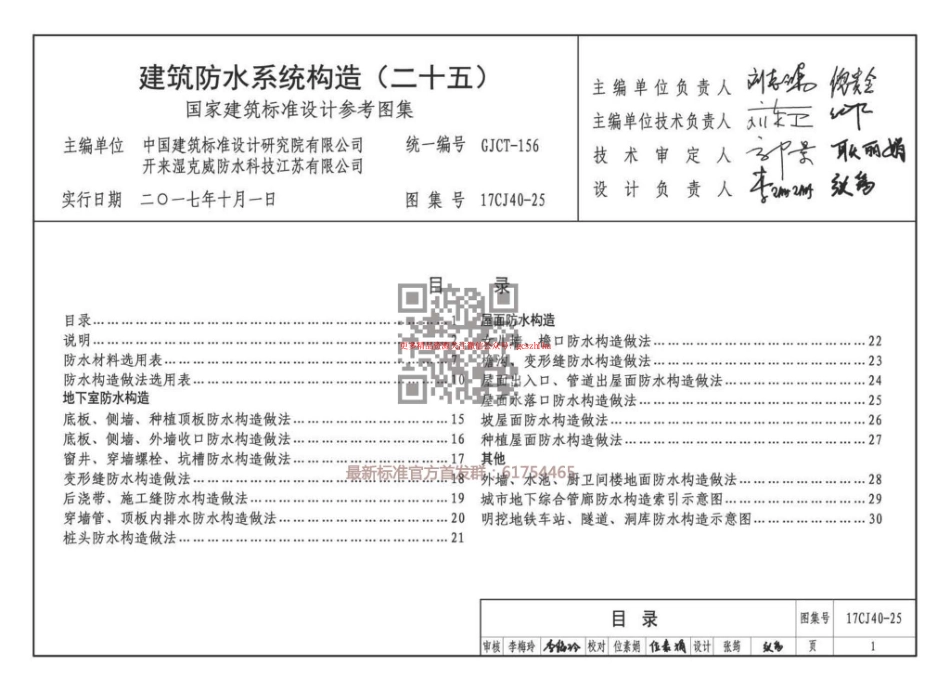 建筑防水系统构造（二十五）
国家建筑标准设计参考图集
主编单位 中国建筑标准设计研究院有限公司 统一编号 GJCT-156
开来湿克威防水科技江苏有限公司
实行日期 二〇一七年十月一日 图集号 17CJ40-25
主编单位负责人
主编单位技术负责人
技术审定人
设计负责人
目 录
目录 1
说明 2
防水材料选用表 7
防水构造做法选用表 10
地下室防水构造
底板、侧墙、种植顶板防水构造做法 15
底板、侧墙、外墙收口防水构造做法 16
窗井、穿墙螺栓、坑槽防水构造做法 17
变形缝防水构造做法 18
后浇带、施工缝防水构造做法 19
穿墙管、顶板内排水防水构造做法 20
桩头防水构造做法 21
屋面防水构造
女儿墙、檐口防水构造做法 22
檐沟、变形缝防水构造做法 23
屋面出入口、管道出屋面防水构造做法 24
屋面水落口防水构造做法 25
坡屋面防水构造做法 26
种植屋面防水构造做法 27
其他
外墙、水池、厨卫间楼地面防水构造做法 28
城市地下综合管廊防水构造索引示意图 29
明挖地铁车站、隧道、洞库防水构造示意图 30
最新标准官方首发群：61754465
目 录 图集号 17CJ40-25
审核 李梅玲 校对 位素娟 设计 张筠 页 1